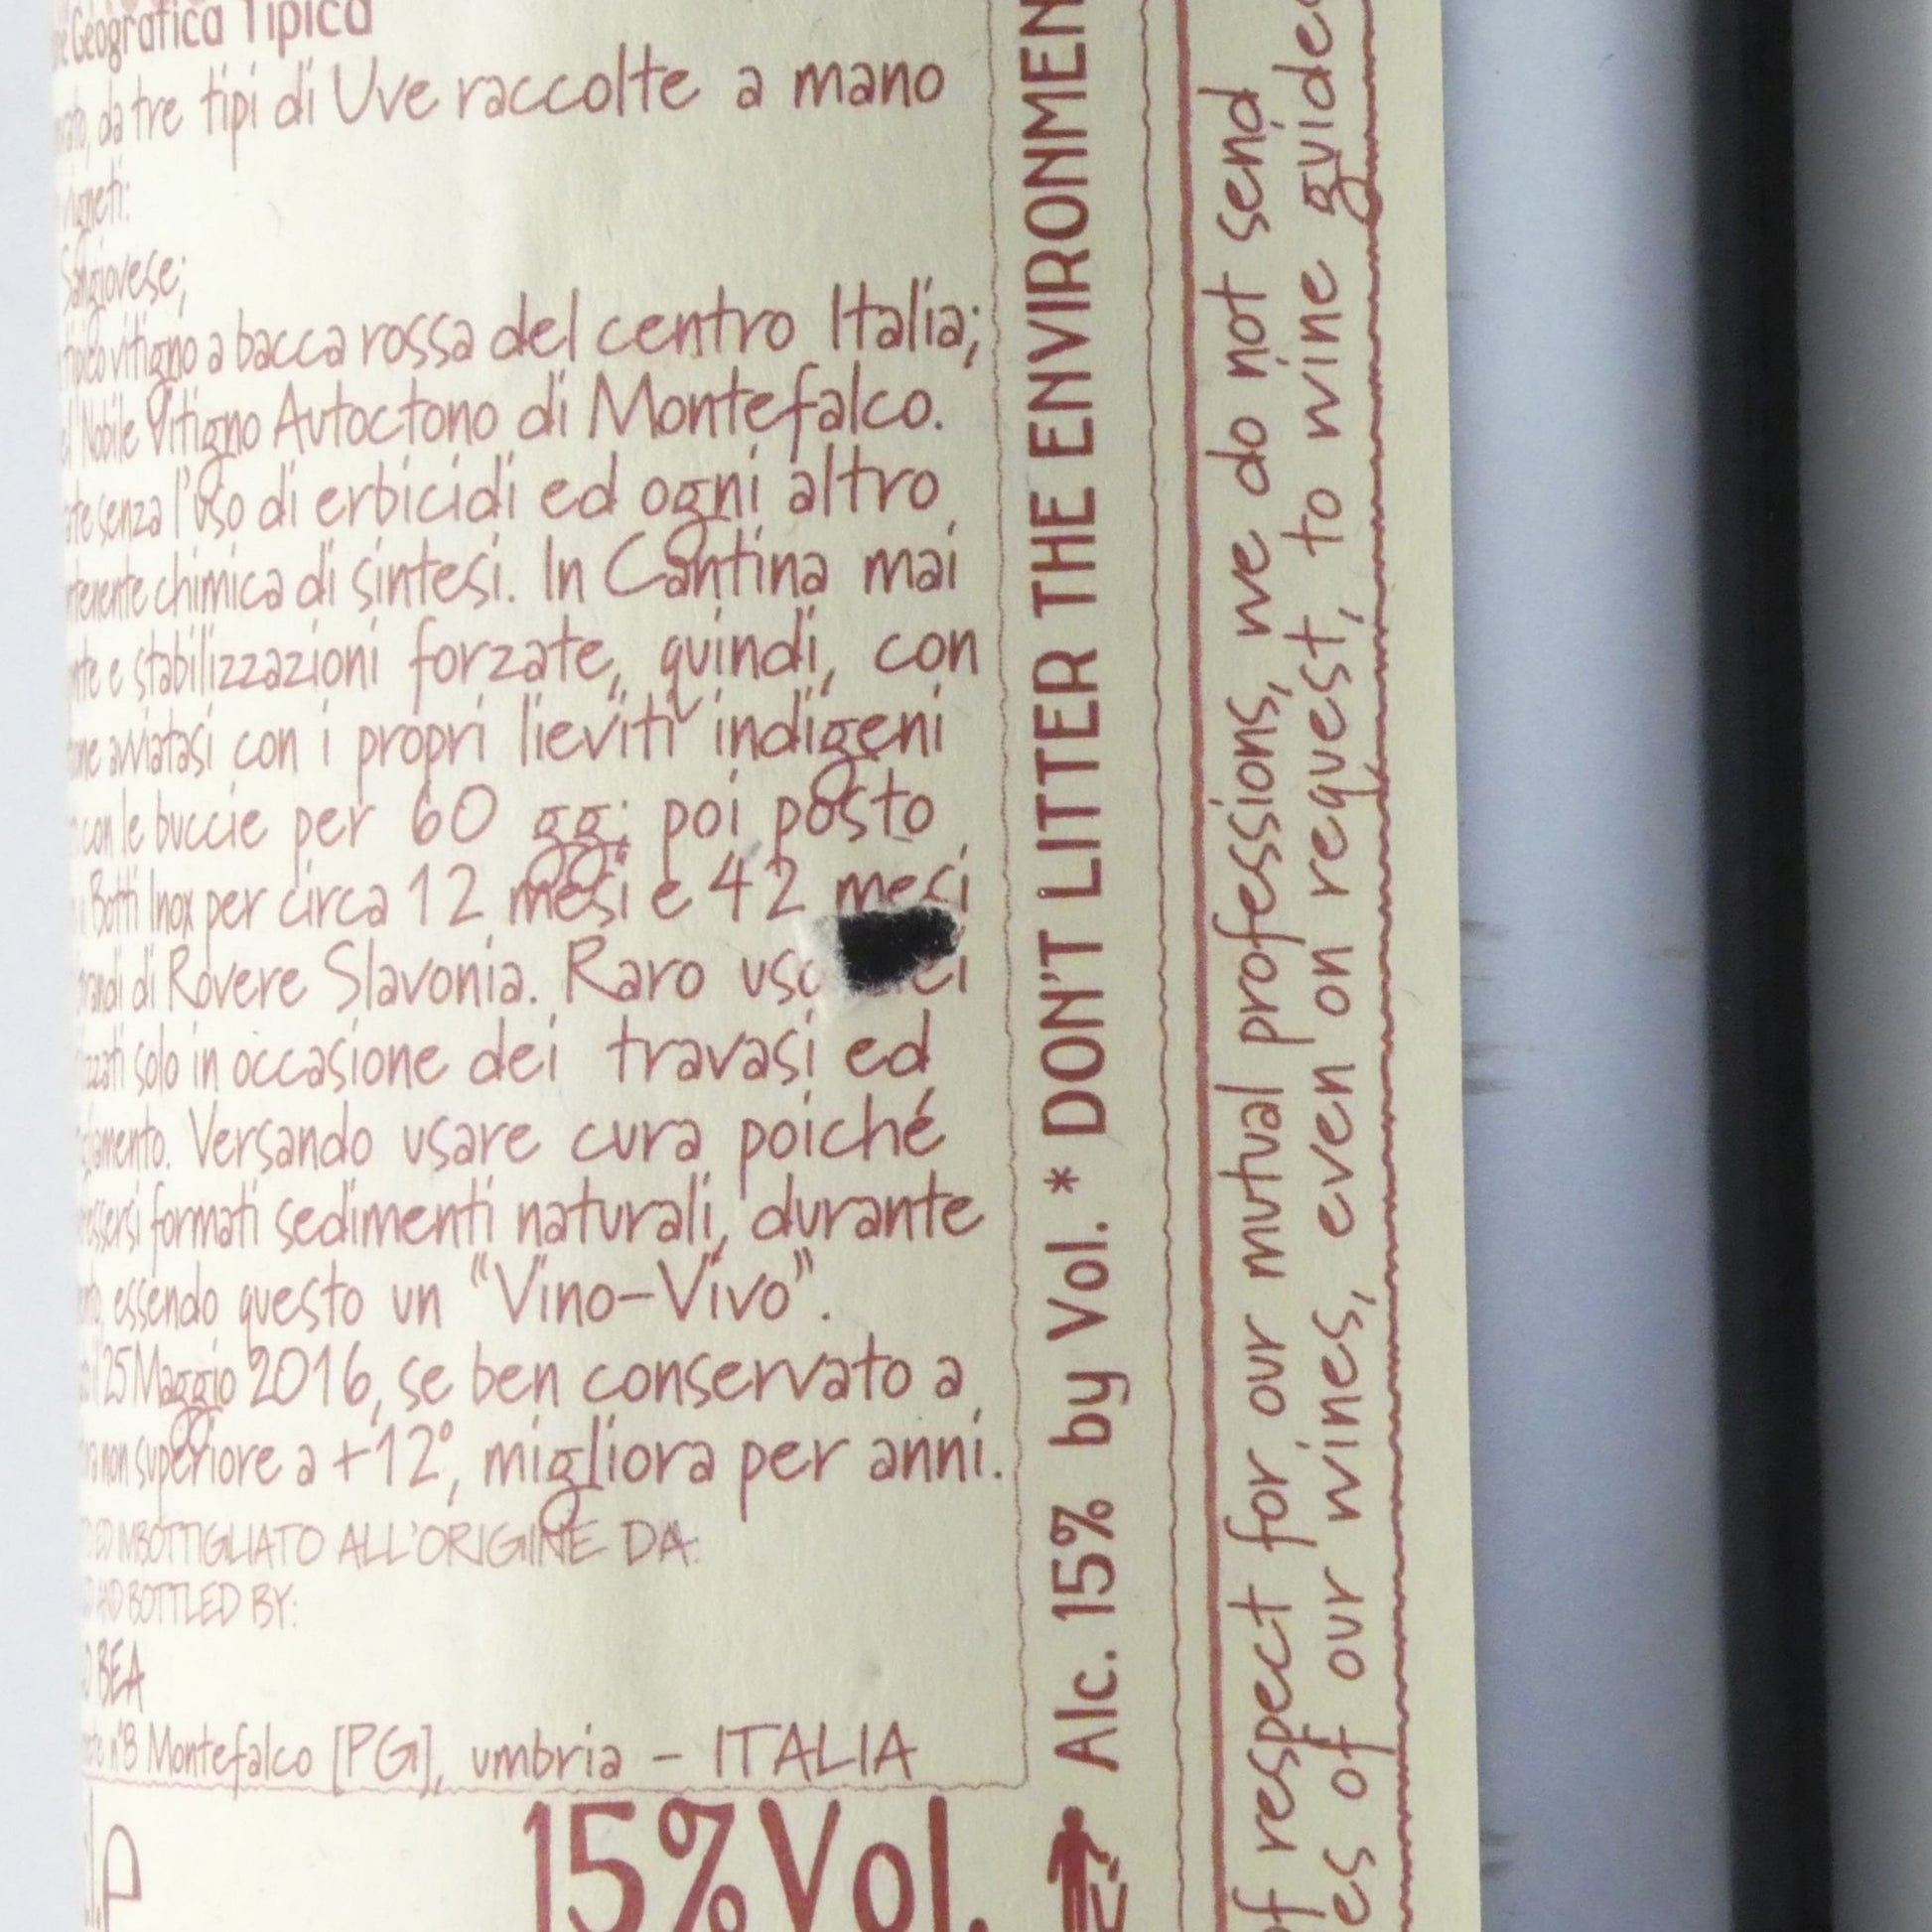 Geografica Tipica
da tre tipi di Uve raccolte a mano
Vigneti:
Sangiovese;
tipico vitigno a bacca rossa del centro Italia;
Nobile Vitigno Autoctono di Montefalco.
senza l'uso di erbicidi ed ogni altro
chimica di sintesi. In Cantina mai
e stabilizzazioni forzate, quindi, con
avviatasi con i propri lieviti indigeni
con le buccie per 60 gg; poi posto
Botti Inox per circa 12 mesi e 42 mesi
di Rovere Slavonia. Raro uso
solo in occasione dei travasi ed
Versando usare cura poiché
essersi formati sedimenti naturali, durante
essendo questo un "Vino-Vivo".
25 Maggio 2016, se ben conservato a
non superiore a +12°, migliora per anni.
ED IMBOTTIGLIATO ALL'ORIGINE DA:
AND BOTTLED BY:
BEA
n°8 Montefalco [PG], umbria - ITALIA
15%Vol.
Alc. 15% by Vol. * DON'T LITTER THE
of respect for our mutual professions, we do not send
of our wines, even on request, to wine